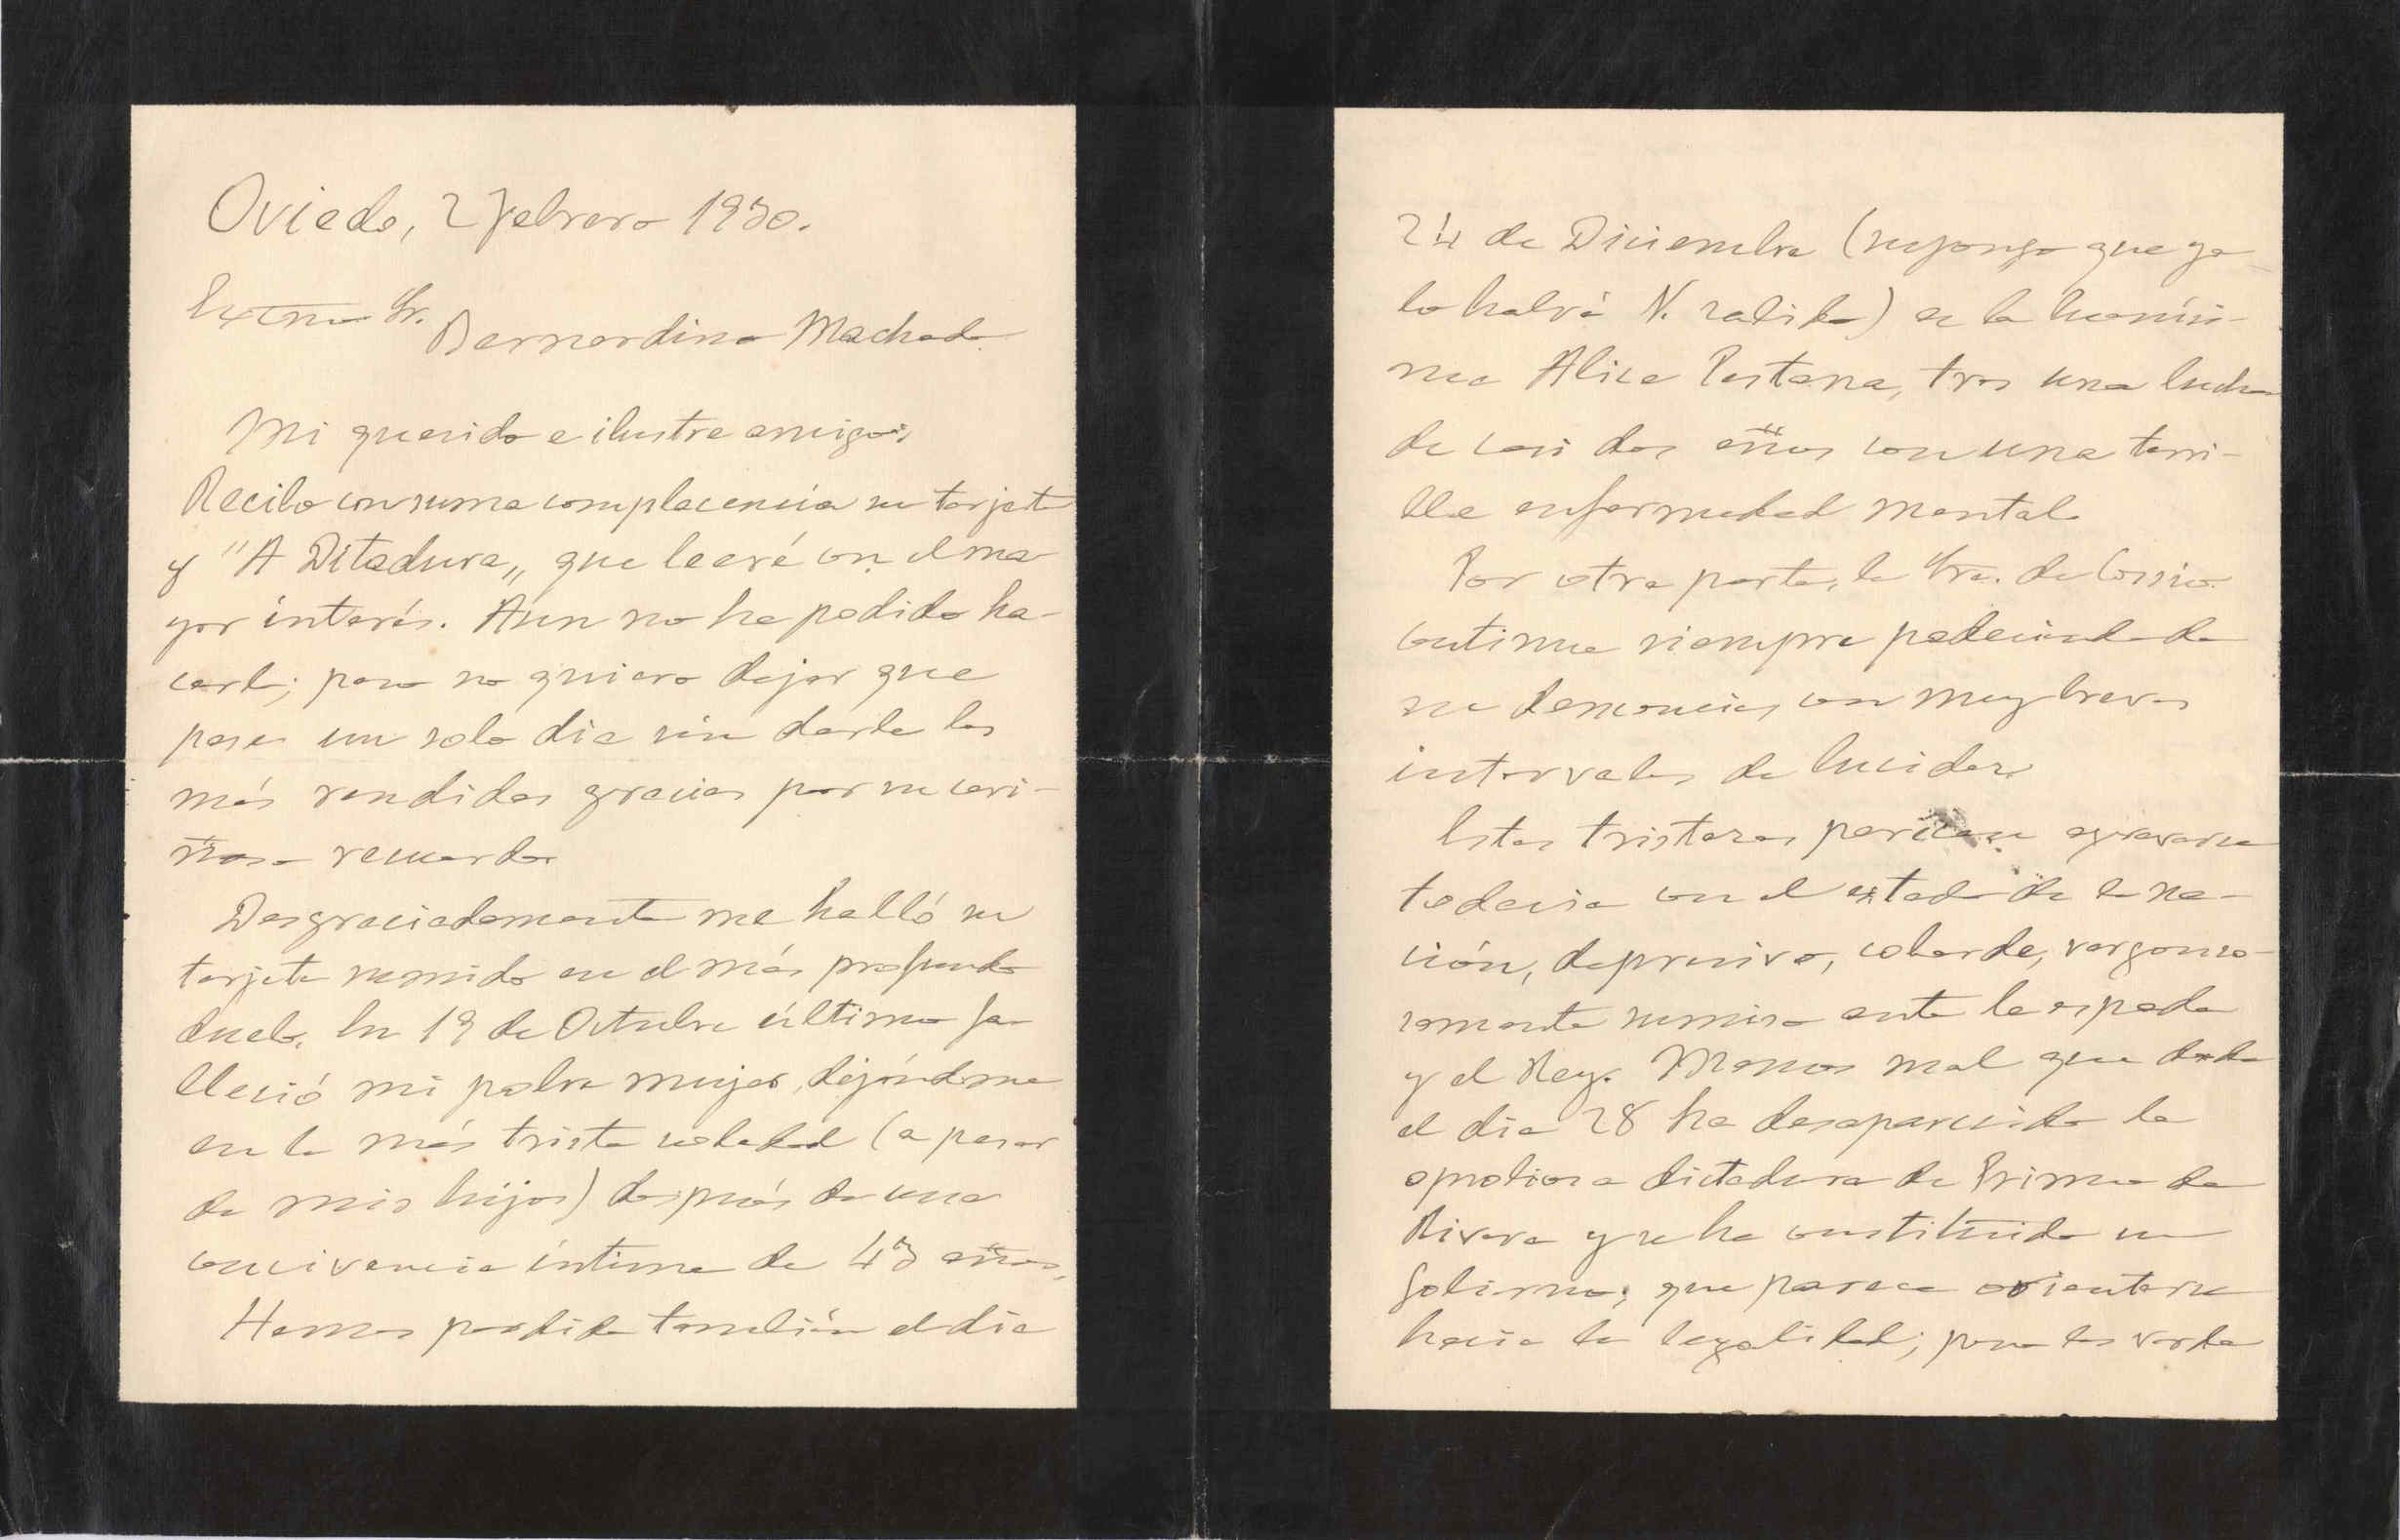 Oviedo, 2 Febrero 1930.
Excmo Sr.
Bernardino Machado
Mi querido e ilustre amigo:
Recibo con suma complacencia su tarjeta
y "A Ditadura„ que leeré con el ma-
yor interés. Aun no he podido ha-
cerlo; pero no quiero dejar que
pase un solo dia sin darle las
más rendidas gracias por su cari-
ñoso recuerdo.
Desgraciadamente me halló su
tarjeta sumido en el más profundo
duelo. En 19 de Octubre último fa-
lleció mi pobre mujer, dejándome
en la más triste soledad (a pesar
de mis hijos) después de una
convivencia íntima de 43 años.
Hemos perdido también el dia
24 de Diciembre (supongo que ya
lo habrá V. sabido) a la
Alice Pestana, tras una lucha
de casi dos años con una terri-
ble enfermedad mental.
Por otra parte, la Sra. de Cossío
continua siempre padeciendo de
su demencia, con muy breves
intervalos de lucidez.
Estas tristezas parecen agravarse
todavia con el estado de la na-
ción, depresivo, cobarde, vergonzo-
samente sumiso ante la espada
y el Rey. Menos mal que desde
el dia 28 ha desaparecido la
oprobiosa dictadura de Primo de
Rivera y se ha constituido un
Gobierno, que parece orientarse
hacia la legalidad; pero las verda